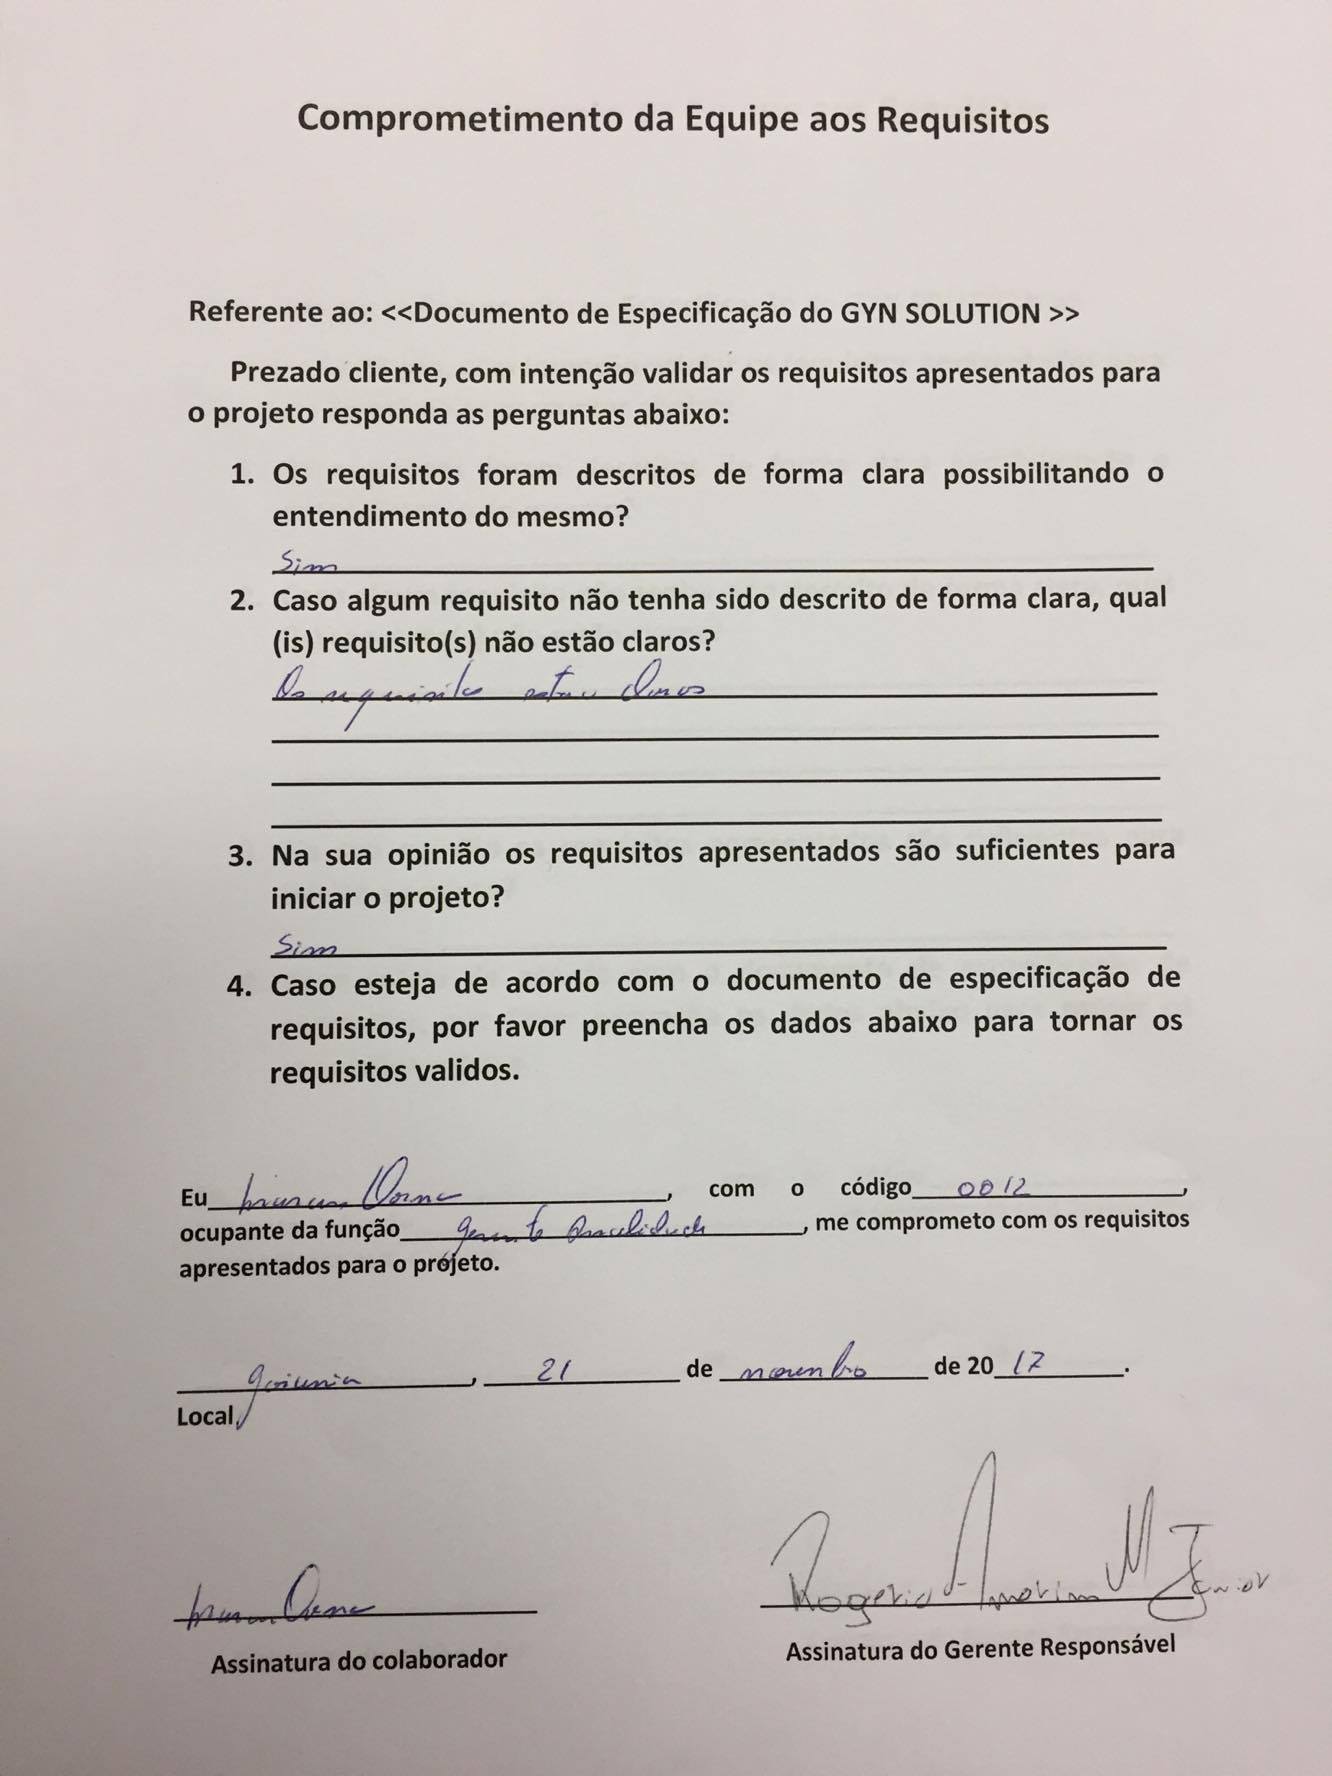 Comprometimento da Equipe aos Requisitos
Referente ao: <<Documento de Especificação do GYN SOLUTION >>
Prezado cliente, com intenção validar os requisitos apresentados para
o projeto responda as perguntas abaixo:
1. Os requisitos foram descritos de forma clara possibilitando o
entendimento do mesmo?
Sim
2. Caso algum requisito não tenha sido descrito de forma clara, qual
(is) requisito(s) não estão claros?
Os requisitos
3. Na sua opinião os requisitos apresentados são suficientes para
iniciar o projeto?
Sim
4. Caso esteja de acordo com o documento de especificação de
requisitos, por favor preencha os dados abaixo para tornar os
requisitos validos.
Eu , com o código 0012,
ocupante da função , me comprometo com os requisitos
apresentados para o projeto.
goiania, 21 de novembro de 2017.
Local
Rogerio Amorim M Junior
Assinatura do colaborador Assinatura do Gerente Responsável